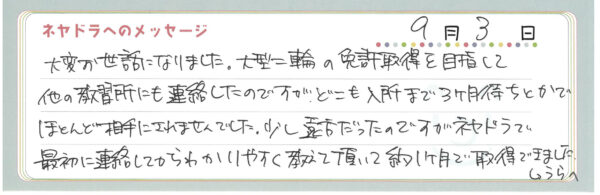 ネヤドラへのメッセージ
9月3日
大変お世話になりました。大型二輪の免許取得を目指して
他の教習所にも連絡したのですが、どこも入所まで3ケ月待ちとかで
ほとんど相手にされませんでした。少し だったのですがネヤドラで
最初に連絡してからわかりやすく教えて頂いて約1ヶ月で取得できました